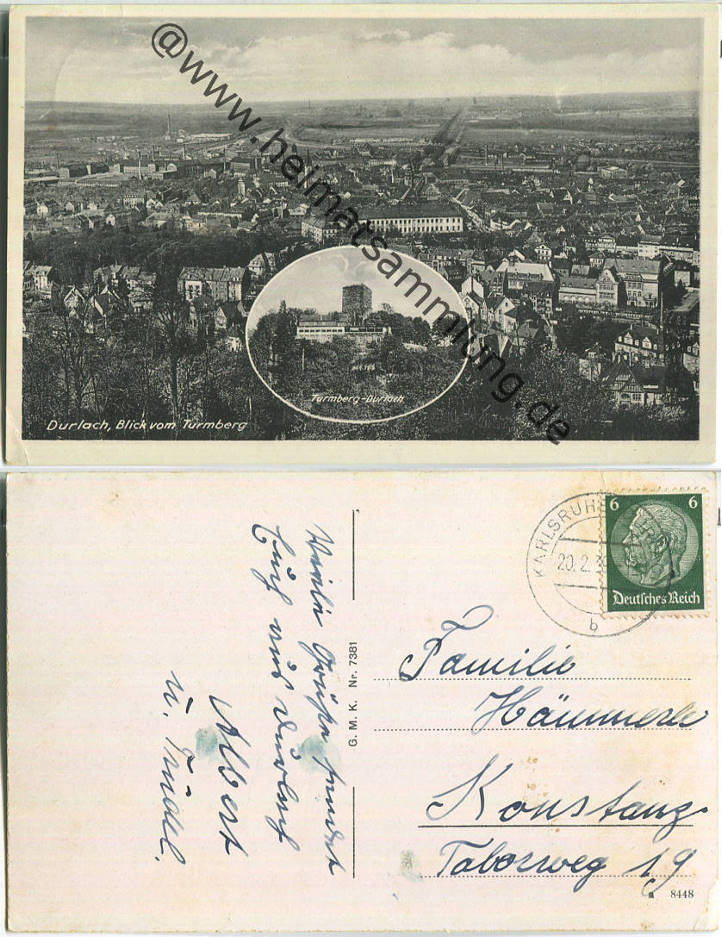 @www.heimatsammlung.de
Turmberg-Durlach
Durlach, Blick vom Turmberg
KARLSRUHE
20.2.
b
6 6
Deutsches Reich
Viele Grüße sendet
Euch aus Durlach
Albert
u. Trudel.
G. M. K. Nr. 7381
Familie
Hämmerle
Konstanz
Taborweg 19
8448